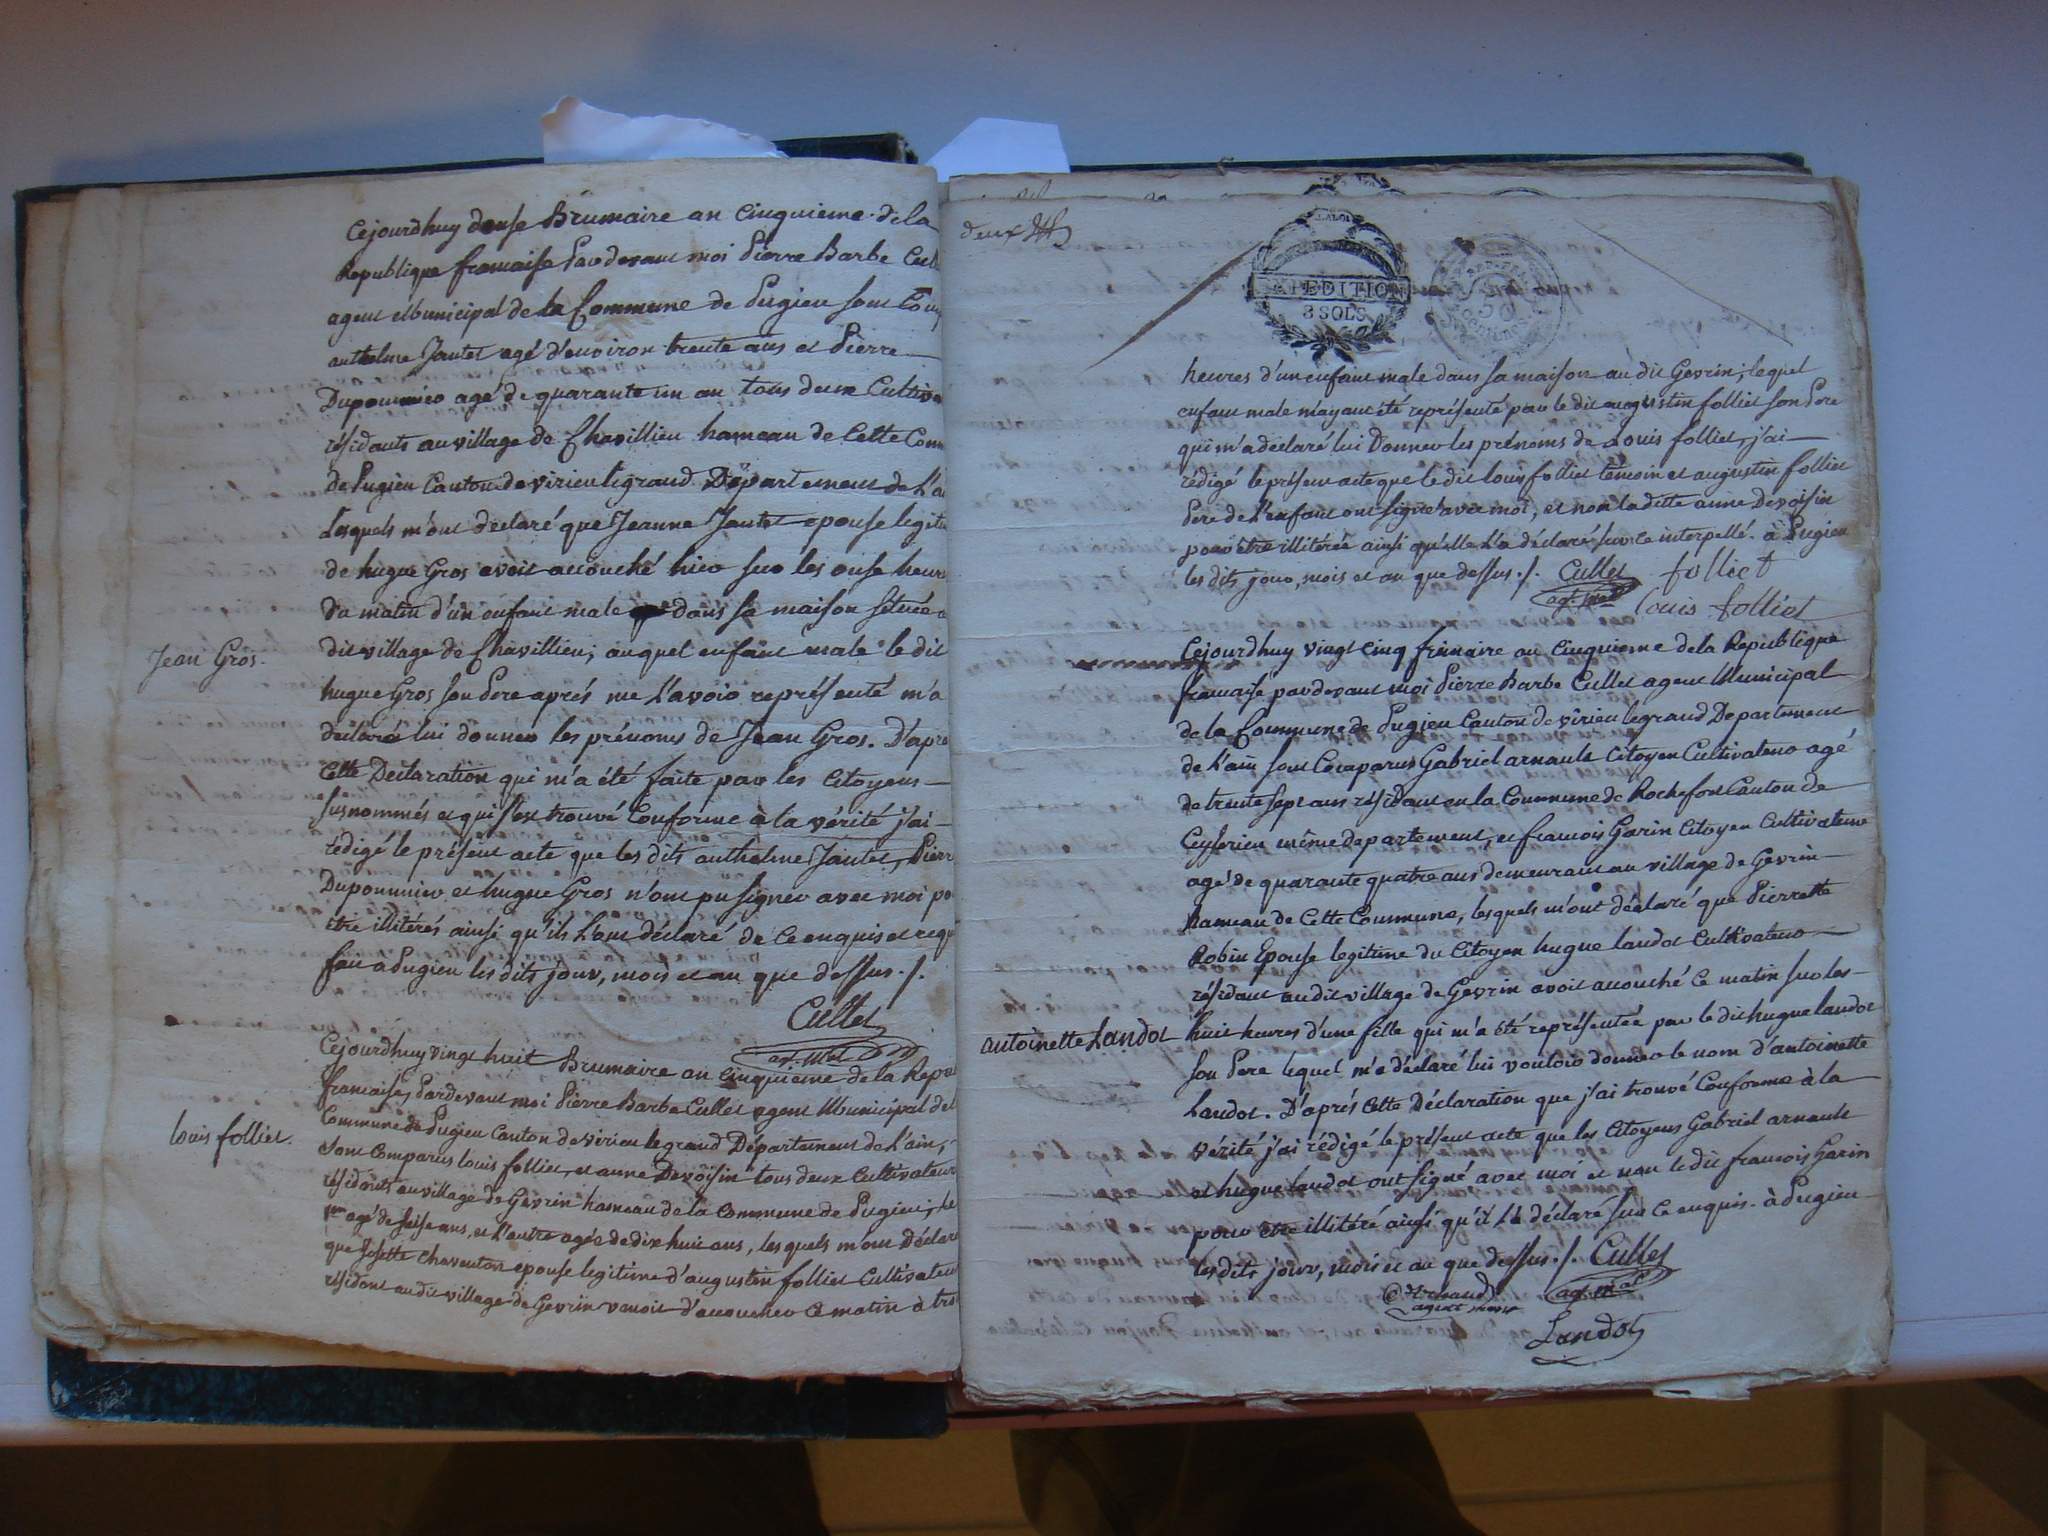 Cejourdhuy douse Brumaire an Cinquieme de la
Republique francaise Pardevant moi Pierre Barbe Cul
agent Municipal de la Commune de Pugieu sont Comp
anthelme Jantet agé d'environ trente ans et Pierre
Dupommier agé de quarante un an tous deux Cultiva
résidants au village de Chavillieu hameau de Cette Comm
de Pugieu Canton de virieu legrand Département de L'a
Lesquels m'ont declaré que Jeanne Jantet epouse legiti
de hugue Gros avoit accouché hier sur les onse heur
du matin d'un enfant male dans sa maison située a
dit village de Chavillieu; auquel enfant male le dit
Jean Gros.
hugue Gros son Pere aprés me L'avoir représenté m'a
declaré lui donner les prénoms de Jean Gros. D'apré
Cette Declaration qui m'a été faite par les Citoyens
susnommés et qui s'est trouvé Conforme à la vérité j'ai
rédigé le présent acte que les dits anthelme Jantet, Pierr
Dupommier et hugue Gros n'ont pu signer avec moi po
être illitérés ainsi qu'ils L'ont déclaré de Ce enquis et requ
fait a Pugieu les dits jour, mois et an que dessus ./.
Cullet
agt. mal
Cejourdhuy vingt huit Brumaire an Cinquieme de la Repu
francaise, Pardevant moi Pierre Barbe Cullet agent Municipal de l
Commune de Pugieu Canton de virieu le grand Département de L'ain,
louis folliet.
sont Comparus louis folliet, et anne Devoisin tous deux Cultivateur
résidants au village de Gevrin hameau de la Commune de Pugieu, Le
1er agé de seise ans, et L'autre agée de dix huit ans, lesquels m'ont Déclar
que Josette Chaventon epouse legitime d'augustin folliet Cultivateur
résidant au dit village de Gevrin venoit d'accoucher Ce matin à troi
deux
LA LOI
EXPEDITION
3 SOLS
REP. FRA.
50
Centimes
heures d'un enfant male dans sa maison au dit Gevrin, lequel
enfant male mayant été représenté par le dit augustin folliet son Pere
qui m'a declaré lui Donner les prénoms de Louis folliet, j'ai
rédigé le présent acte que le dit louis folliet témoin et augustin folliet
Pere de L'enfant ont signé avec moi, et non la ditte anne Devoisin
pour être illitérée ainsi qu'elle L'a déclaré sur ce interpellé. à Pugieu
les dits jour, mois et an que dessus ./. Cullet folliet
agt. mal louis folliet
Cejourdhuy vingt cinq frimaire an Cinquieme de la Republique
francaise pardevant moi Pierre Barbe Cullet agent Municipal
de la Commune de Pugieu Canton de virieu legrand Departement
de L'ain sont Comparus Gabriel arnault Citoyen Cultivateur agé
de trente sept ans résidant en la Commune de Rochefort Canton de
Ceyserieu même departement, et francois Garin Citoyen Cultivateur
agé de quarante quatre ans demeurant au village de Gevrin
hameau de Cette Commune, lesquels m'ont déclaré que Pierrette
Robin Epouse legitime du Citoyen hugue landot Cultivateur
résidant au dit village de Gevrin avoit accouché Ce matin sur les
antoinette Landot
huit heures d'une fille qui m'a été représentée par le dit hugue landot
son Pere lequel m'a déclaré lui vouloir donner le nom d'antoinette
Landot. D'aprés Cette Déclaration que j'ai trouvé Conforme à la
vérité j'ai rédigé le présent acte que les Citoyens Gabriel arnault
et hugue landot ont signé avec moi et non le dit francois Garin
pour être illitéré ainsi qu'il L'a déclaré sur Ce enquis. à Pugieu
les dits jour, mois et an que dessus ./. Cullet
agt. mal
agent
Landot